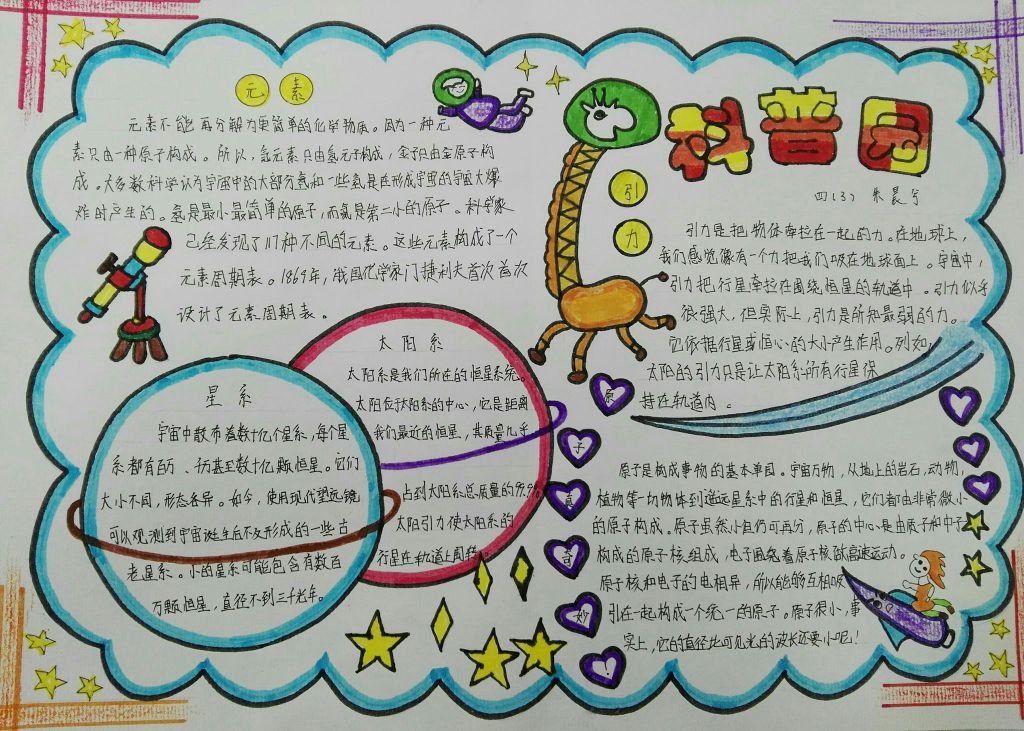 科普园
四(3) 朱晨兮
元素
元素不能再分解为更简单的化学物质。因为一种元
素只由一种原子构成。所以，氢元素只由氢元子构成，金子只由金原子构
成。大多数科学认为宇宙中的大部分氢和一些氦是在形成宇宙的宇宙大爆
炸时产生的。氢是最小最简单的原子，而氦是第二小的原子。科学家
已经发现了117种不同的元素。这些元素构成了一个
元素周期表。1869年，俄国化学家门捷利夫首次首次
设计了元素周期表。
引力
引力是把物体牵拉在一起的力。在地球上，
我们感觉像有一个力把我们吸在地球面上。宇宙中，
引力把行星牵拉在围绕恒星的轨道中。引力似乎
很强大，但实际上，引力是所知最弱的力。
它依据行星或恒心的大小产生作用。例如，
太阳的引力只是让太阳系所有行星保
持在轨道内。
太阳系
太阳系是我们所在的恒星系统。
太阳位于太阳系的中心，它是距离
我们最近的恒星，其质量几乎
占到太阳系总质量的99.9%
太阳引力使太阳系的
行星在轨道上周转。
星系
宇宙中散布着数十亿个星系，每个星
系都有百万、千万甚至数十亿颗恒星。它们
大小不同，形态各异。如今，使用现代望远镜
可以观测到宇宙诞生后不及形成的一些古
老星系。小的星系可能包含有数百
万颗恒星，直径不到三千光年。
原子真奇妙！
原子是构成事物的基本单园。宇宙万物，从地上的岩石，动物，
植物等一切物体到遥远星系中的行星和恒星，它们都由非常微小
的原子构成。原子虽然小但仍可再分，原子的中心是由质子和中子
构成的原子核组成，电子围绕着原子核做高速运动。
原子核和电子的电相异，所以能够互相吸
引在一起构成一个统一的原子。原子很小，事
实上，它的直径比可见光的波长还要小呢！